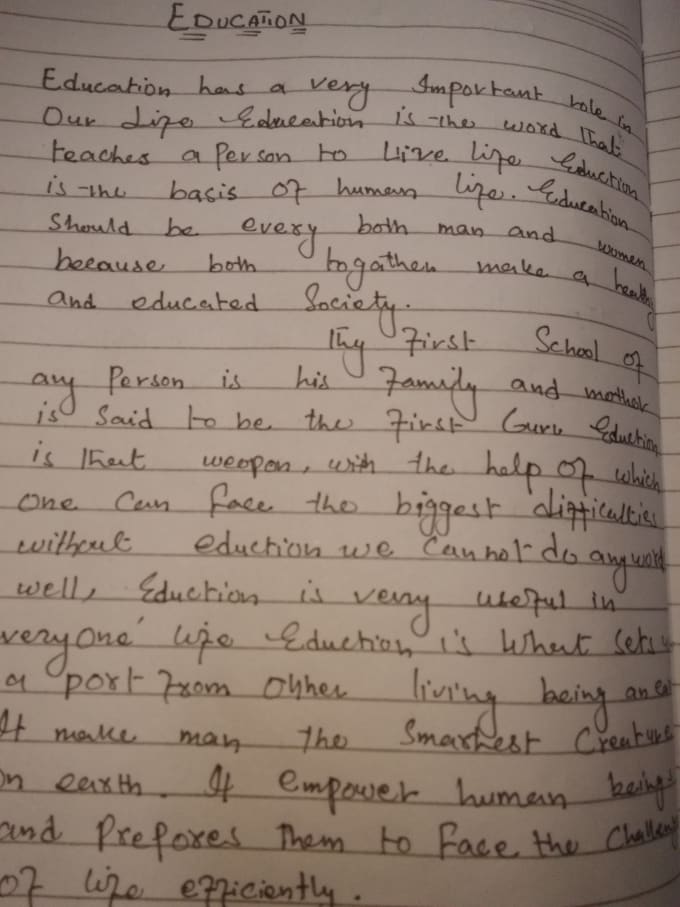 EDUCATION
Education has a very Important role in
Our Life Education is the word that
teaches a Person to live life Eduction
is the basis of human life. Education
Should be every both man and women
because both togather make a healthy
and educated Society.
Thy First School of
any Person is his Family and mother
is Said to be the First Guru Eduction
is that weopon, with the help of which
one Can face the biggest difficulties
without eduction we Cannot do any word
well, Eduction is very useful in
veryone' life Eduction is What sets
a port From Other living being an
It make man the Smartest Creature
on earth. It empower human beings
and Prepores Them to Face the Challeng
of life efficiently.